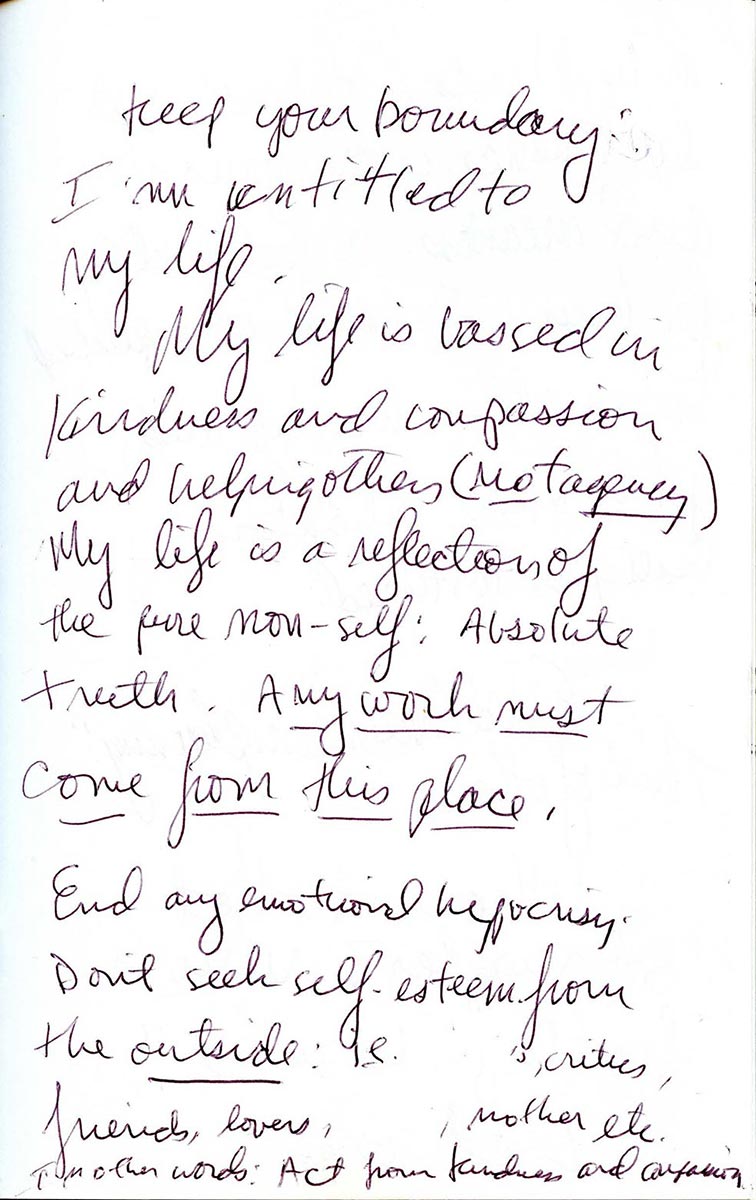 Keep your boundary:
I'm entitled to
my life.
My life is bassed in
kindness and compassion
and helping others (Not agency)
My life is a reflection of
the pure non-self: Absolute
truth. Any work must
come from this place.
End any emotional hypocrisy.
Don't seek self-esteem from
the outside: ie. 's, critics,
friends, lovers, , mother etc.
In other words: Act from kindness and compassion